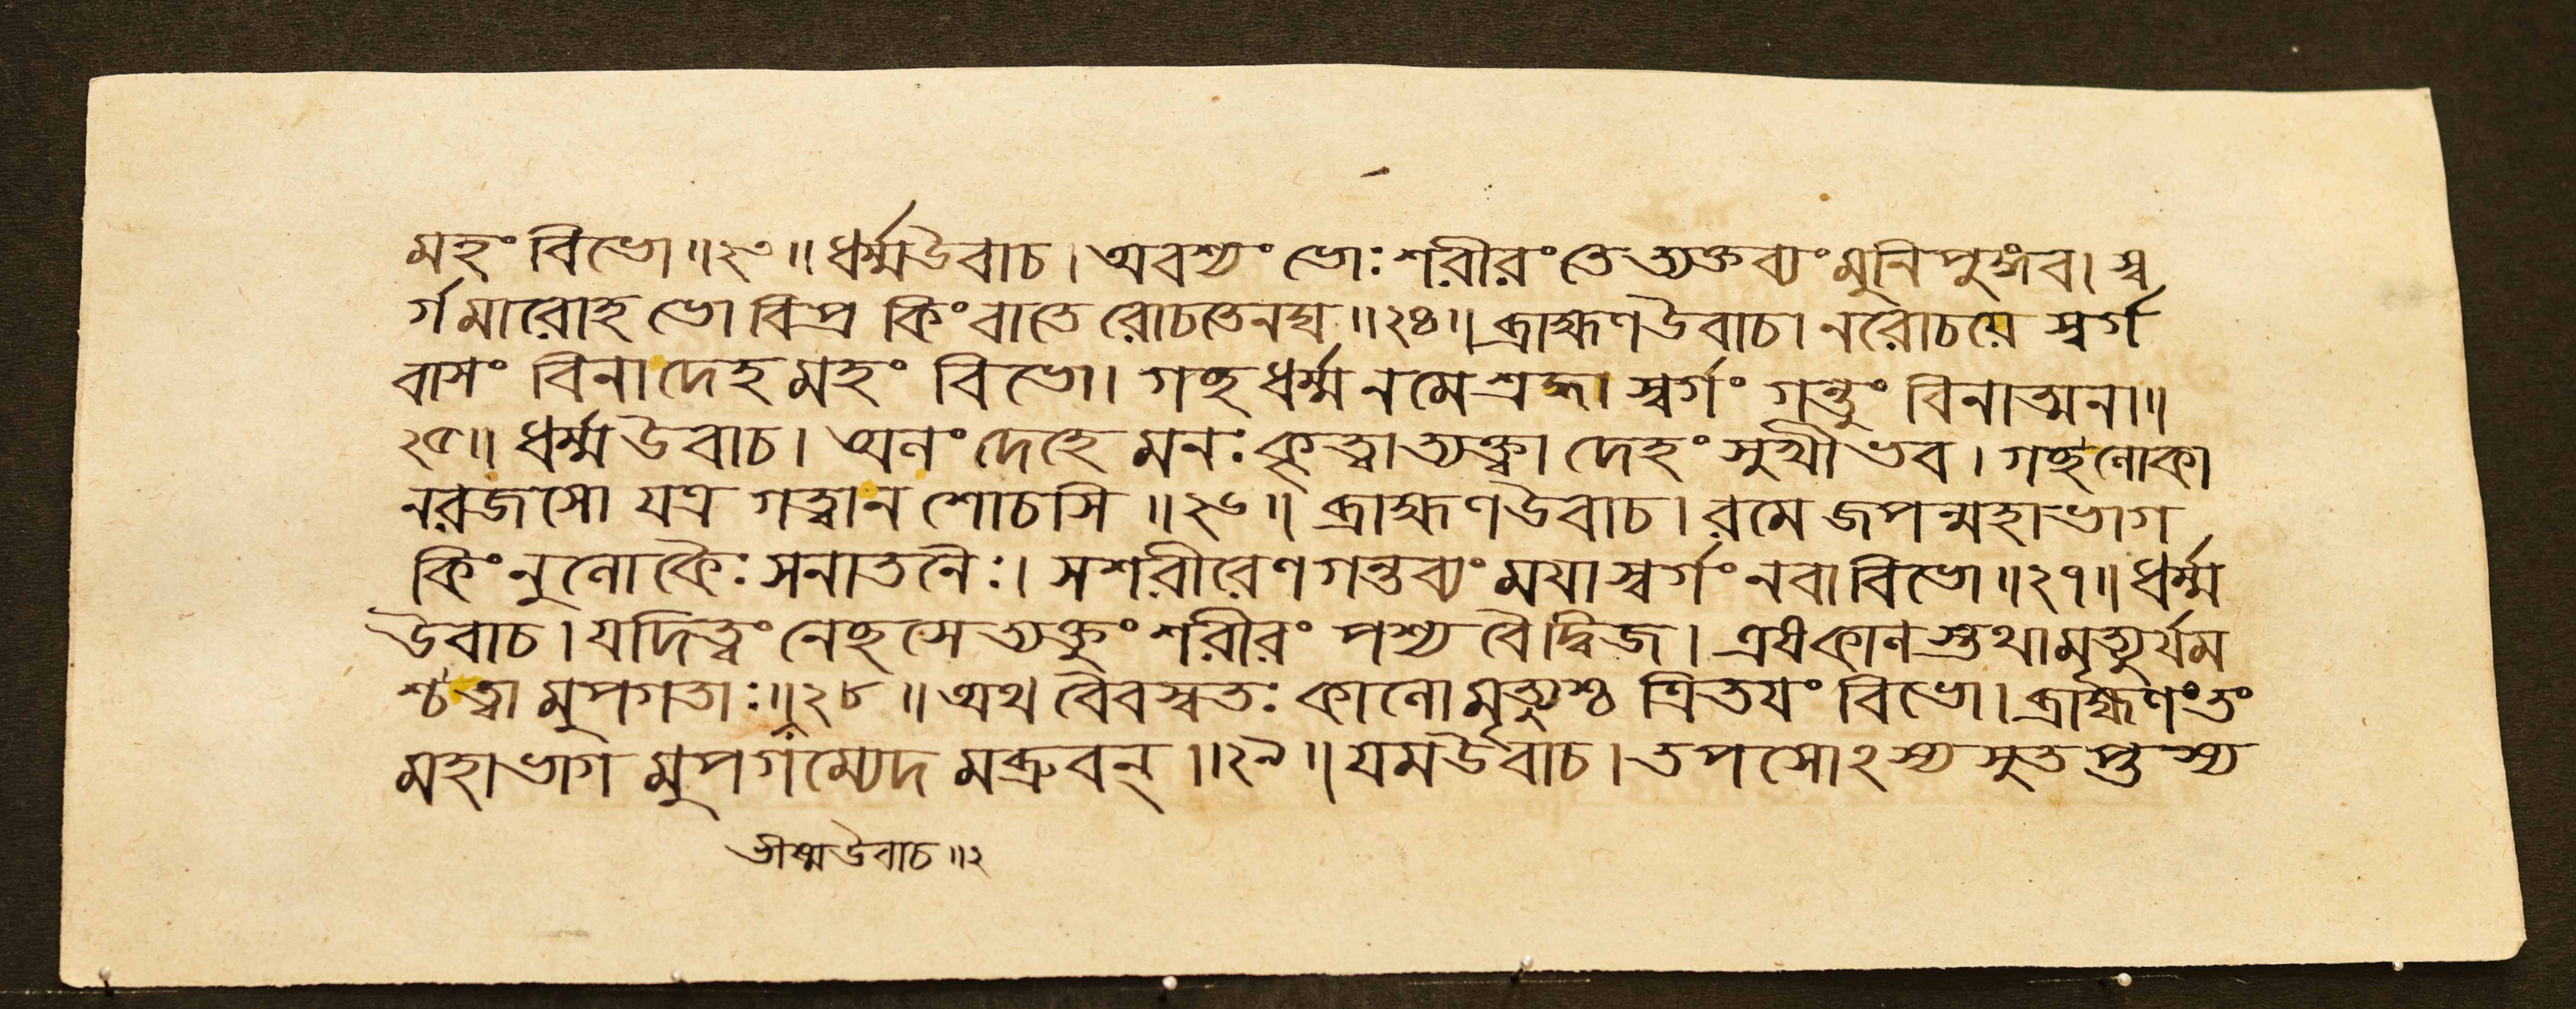 মহং বিভো ॥২৩॥ ধর্ম্মউবাচ। অবশ্যং ভোঃ শরীরং তে ত্যক্তব্যং মুনিপুঙ্গব। স্ব
র্গমারোহ ভো বিপ্র কিং বাতে রোচতেনঘ ॥২৪॥ ব্রাহ্মণউবাচ। নরোচয়ে স্বর্গ
বাসং বিনাদেহমহং বিভো। গচ্ছধর্ম্মনমেশ্রদ্ধা স্বর্গং গন্তুং বিনাত্মনা॥
২৫॥ ধর্ম্মউবাচ। অলং দেহে মনঃ কৃত্বাত্যক্ত্বা দেহং সুখীভব। গচ্ছলোকা
নরজসো যত্র গত্বান শোচসি ॥২৬॥ ব্রাহ্মণউবাচ। রমে জপন্মহাভাগ
কিং নুলোকৈঃ সনাতনৈঃ। সশরীরেণগন্তব্যং ময়াস্বর্গং নবাবিভো ॥২৭॥ ধর্ম্ম
উবাচ। যদিত্বং নেচ্ছসে ত্যক্তুং শরীরং পশ্য বৈদ্বিজ। এষকালস্তথামৃত্যুর্যম
শ্চত্বামুপগতাঃ ॥২৮॥ অথ বৈবস্বতঃ কালোমৃত্যুশ্চ ত্রিতয়ং বিভো। ব্রাহ্মণং তং
মহাভাগমুপগম্যেদমব্রুবন্ ॥২৯॥ যমউবাচ। তপসোঽস্য সুতপ্তস্য
ভীষ্মউবাচ॥২